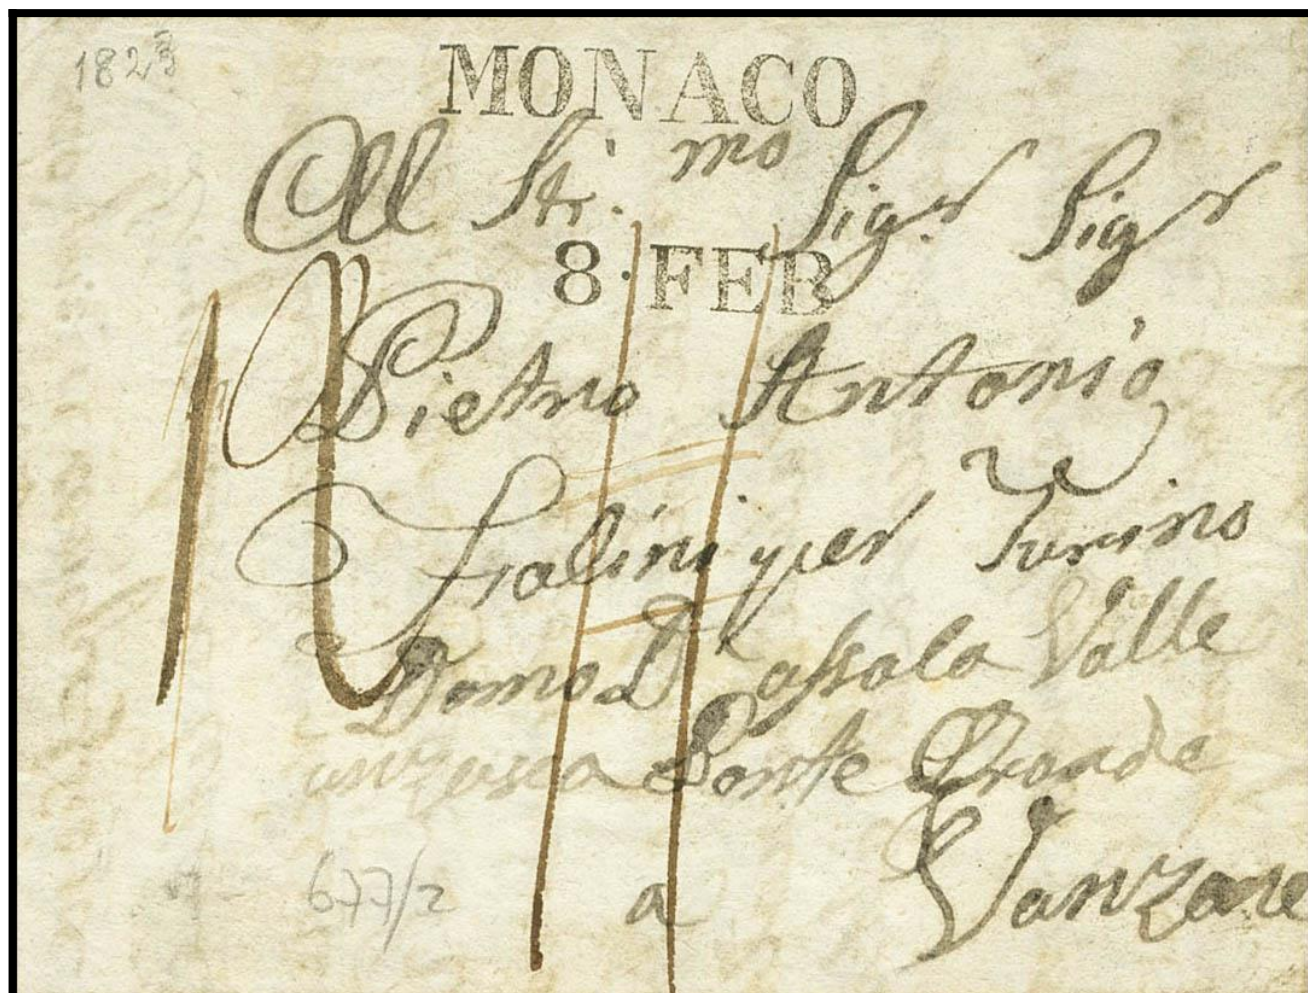 1823
MONACO
All Str. mo Sigr Sigr
8. FEB
Pietro Antonio
per Turino
Domo D'assola Valle
anzasca Ponte Grande
677/2
a Vanzone